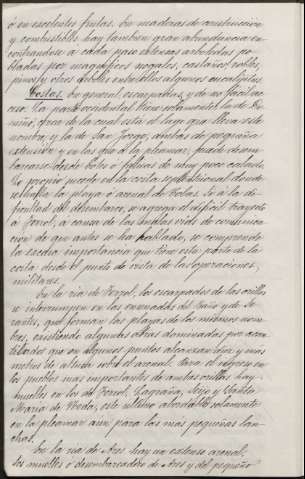 ó en excelentes frutas. En maderas de construccion
y combustible hay tambien gran abundancia en
contrandose a cada paso extensos arbolados po
blados por magníficos nogales, castaños, robles,
pinos y otros árboles entre ellos algunos eucaliptus.
Costas. En general escarpadas, y de no fácil ac
ceso. La parte occidental tiene solamente la de Do
niños, cerca de la cual está el lago que lleva este
nombre y la de San Jorge, ambas de pequeña
extension y en las que a la pleamar, puede desem
barcarse desde botes ó falúas de muy poco calado.
Lo propio sucede en la costa septentrional donde
se halla la playa ó arenal de Si a la di
ficultad del desembarco, se agrega el difícil trayecto
a Ferrol, a causa de las malas vias de comunica
cion de que antes se ha hablado, se comprende
la escasa importancia que tiene esta parte de la
costa desde el punto de vista de las operaciones
militares.
En la ria de Ferrol, los escarpados de las orillas
se interrumpen en las ensenadas del Baño y de Ca
ranza, que forman las playas de los mismos nom
bres, existiendo algunas otras dominadas por acan
tilados que en algunos puntos alcanzan diez y mas
metros de altura sobre el arenal. Para el ingreso en
los pueblos mas importantes de ambas orillas hay
muelles en los de Ferrol, Lagraña, Seijo y Santa
Maria de Neda, este ultimo abordable solamente
en la pleamar aun para las mas pequeñas lan
chas.
En la ria de Ares hay un extenso arenal,
los muelles ó desembarcaderos de Ares y del pequeño